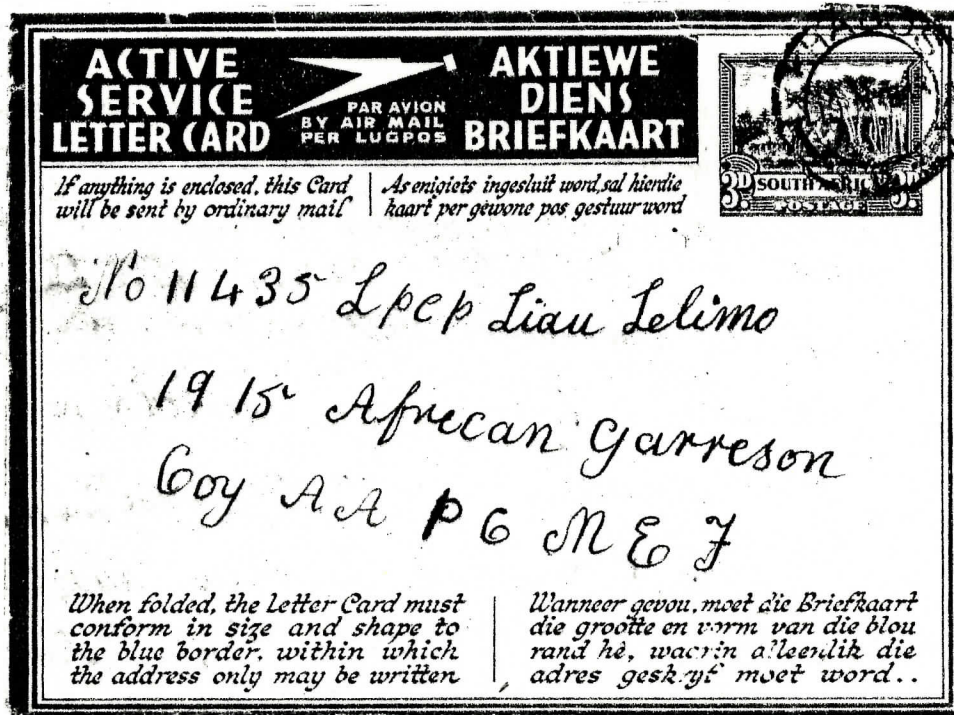 ACTIVE SERVICE LETTER CARD
PAR AVION
BY AIR MAIL
PER LUGPOS
AKTIEWE DIENS BRIEFKAART
If anything is enclosed, this Card
will be sent by ordinary mail
As enigiets ingesluit word, sal hierdie
kaart per gewone pos gestuur word
3D SOUTH AFRICA 3D
POSTAGE
No 11435 Lpcp Liau Lelimo
1915 Afrecan Garreson
Coy AA PC MEF
When folded, the Letter Card must
conform in size and shape to
the blue border, within which
the address only may be written
Wanneer gevou, moet die Briefkaart
die grootte en vorm van die blou
rand hê, waarin alleenlik die
adres geskryf moet word..